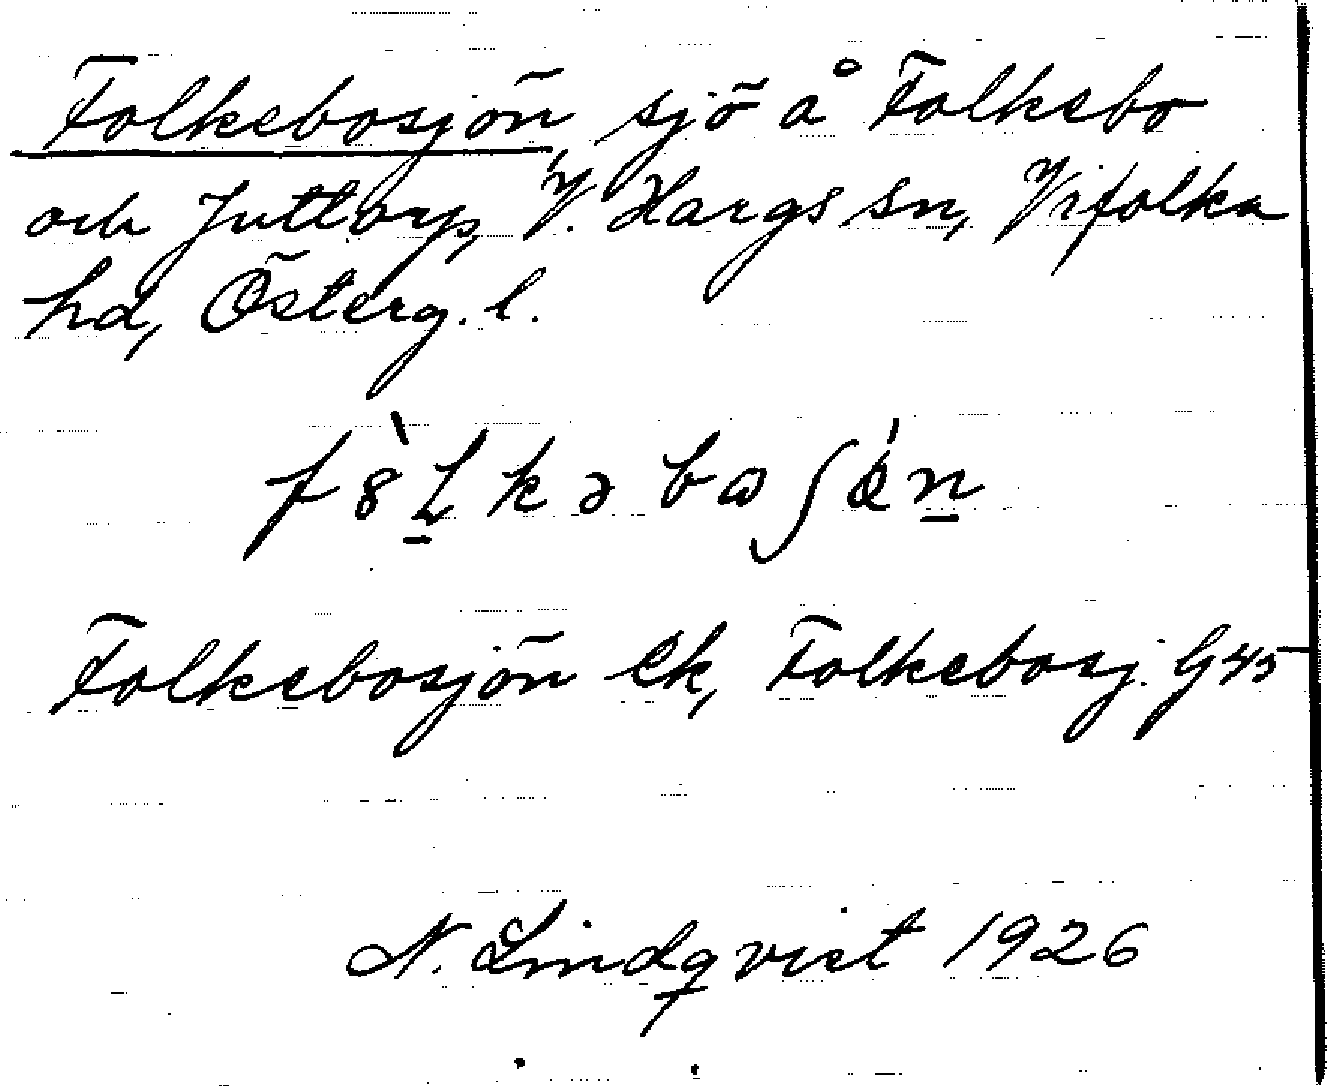 Folkebosjön, sjö å Folkebo
och Juttorp, V. Hargs sn, Vifolka
hd, Österg. l.
Folkebosjön Ek, Folkebosj. G45
N. Lindqvist 1926